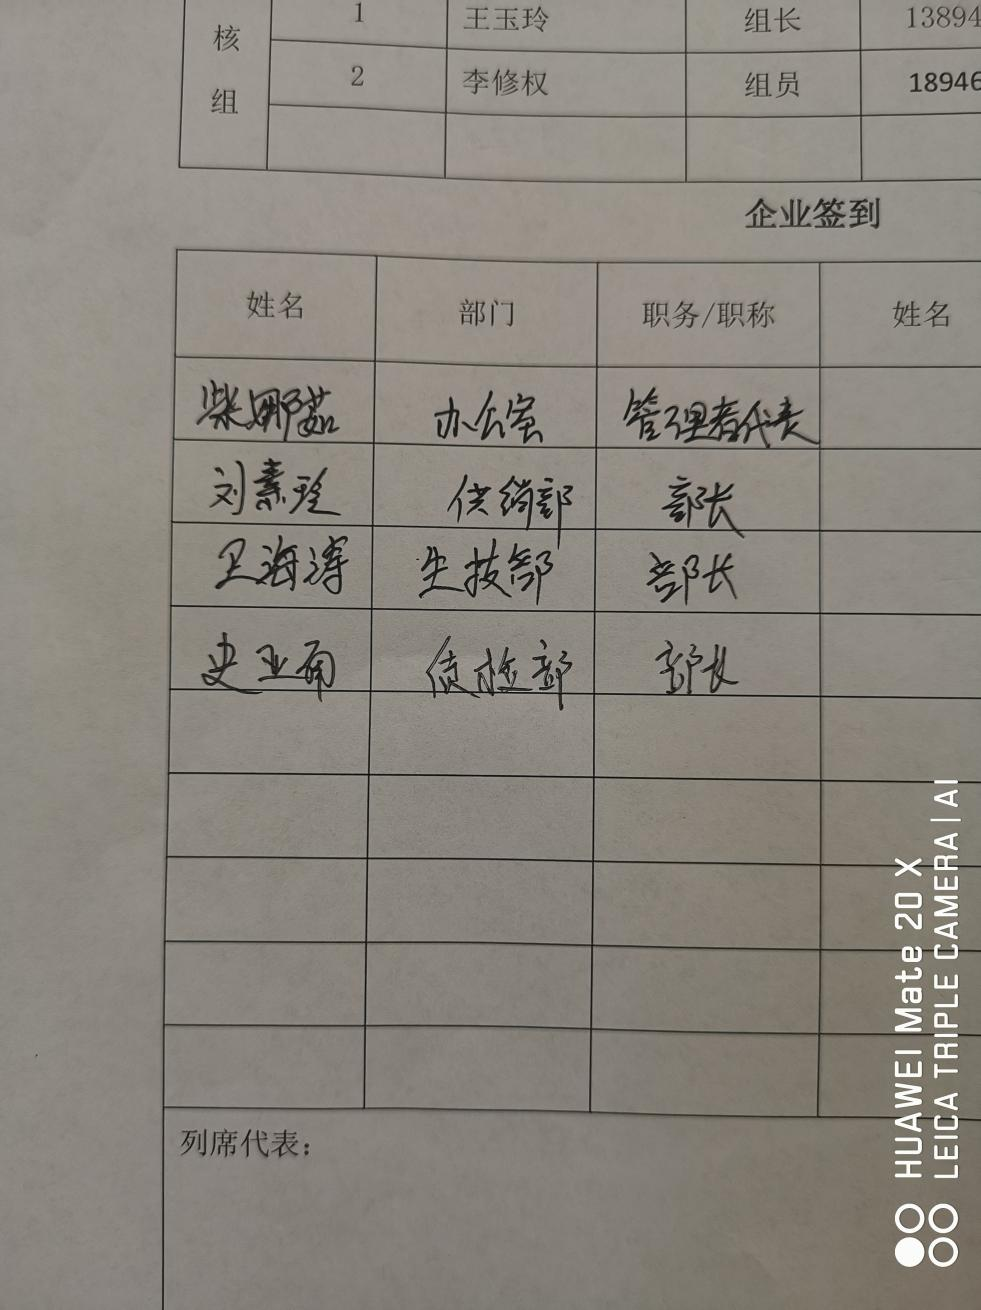 核
组
1 王玉玲 组长 13894
2 李修权 组员 18946
企业签到
姓名 部门 职务/职称 姓名
柴娜茹 办公室 管理者代表
刘素玲 供销部 部长
卫海涛 生技部 部长
史亚南 质检部 部长
列席代表：
HUAWEI Mate 20 X
LEICA TRIPLE CAMERA | AI